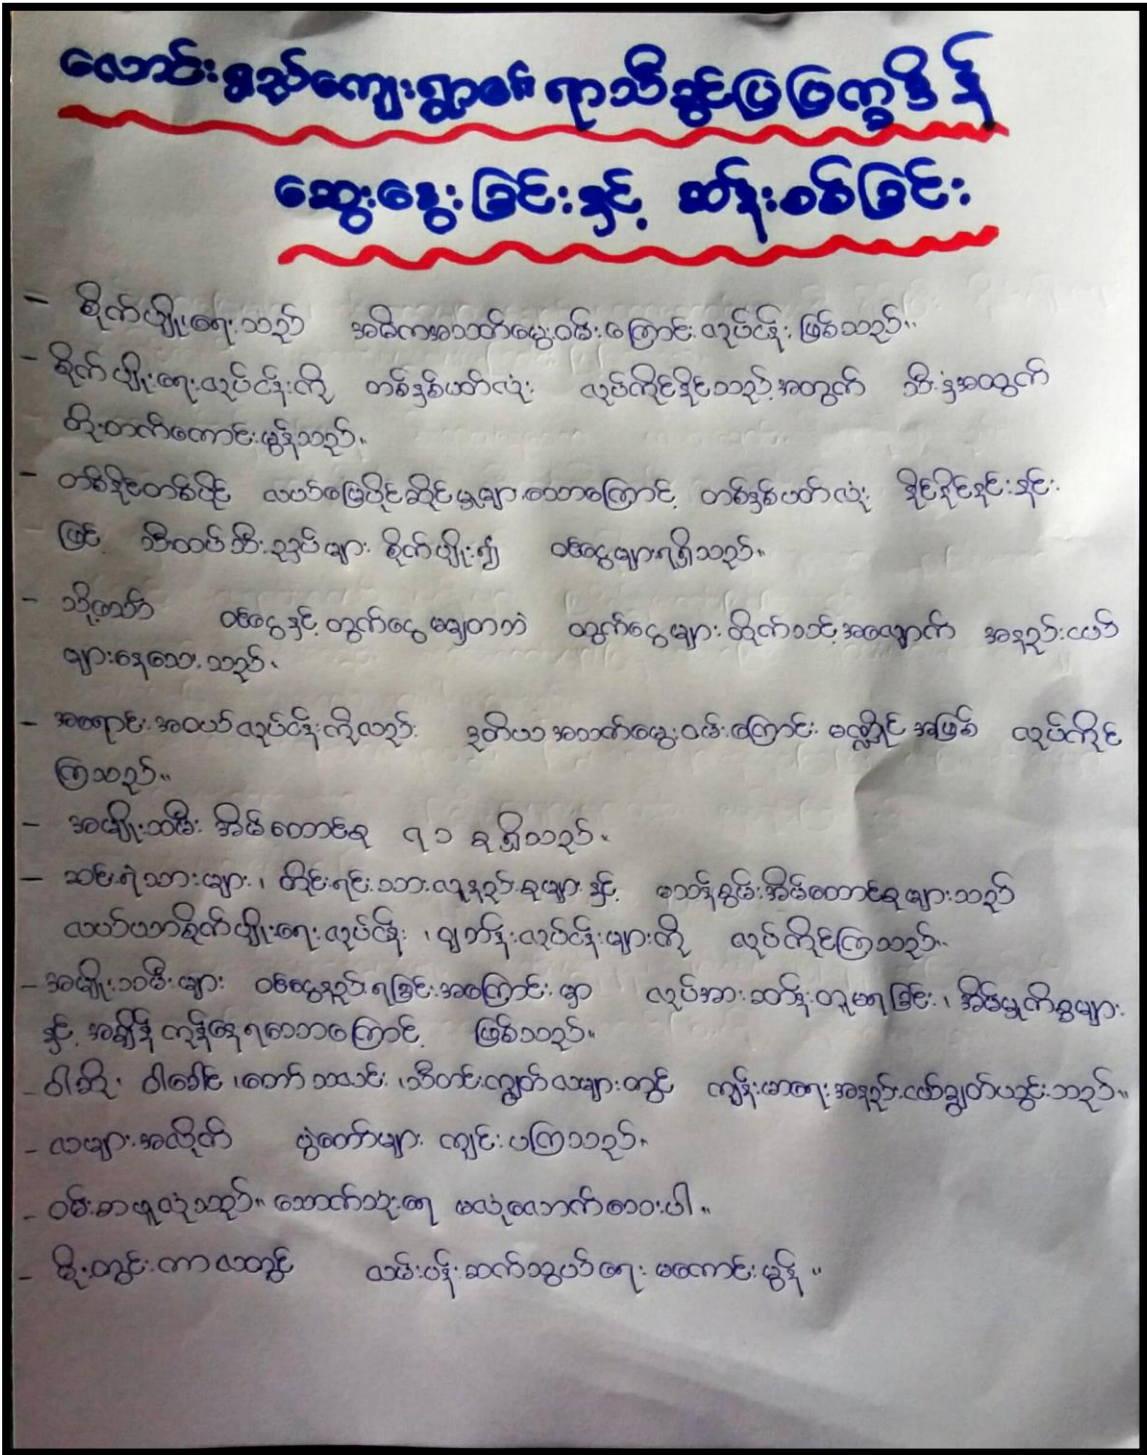 လောင်းရှည်ကျေးရွာ၏ ရာသီခွင်ပြပြက္ခဒိန်
ဆွေးနွေးခြင်းနှင့် ဆန်းစစ်ခြင်း
- စိုက်ပျိုးရေးသည် အဓိကအသက်မွေးဝမ်းကြောင်းလုပ်ငန်း ဖြစ်သည်။
- စိုက်ပျိုးရေးလုပ်ငန်းကို တစ်နှစ်ပတ်လုံး လုပ်ကိုင်နိုင်သည့်အတွက် သီးနှံအထွက်
တိုးတက်ကောင်းမွန်သည်။
- တစ်နိုင်တစ်ပိုင် လယ်မြေပိုင်ဆိုင်မှုများသောကြောင့် တစ်နှစ်ပတ်လုံး နိုင်နိုင်နင်းနင်း
ဖြင့် သီးထပ်သီးညှပ်များ စိုက်ပျိုး၍ ဝင်ငွေများရရှိသည်။
- သို့သော် ဝင်ငွေနှင့်ထွက်ငွေမမျှတဘဲ ထွက်ငွေများ တိုက်သင့်အလျောက် အနည်းငယ်
များနေသေးသည်။
- အရောင်းအဝယ်လုပ်ငန်းကိုလည်း ဒုတိယအသက်မွေးဝမ်းကြောင်း မဏ္ဍိုင်အဖြစ် လုပ်ကိုင်
ကြသည်။
- အမျိုးသမီး အိမ်ထောင်စု ၇၁ ခု ရှိသည်။
- ဆင်းရဲသားများ၊ တိုင်းရင်းသားလူနည်းစုများ နှင့် မသန်စွမ်းအိမ်ထောင်စုများသည်
လယ်ယာစိုက်ပျိုးရေးလုပ်ငန်း၊ ကျပန်းလုပ်ငန်းများကို လုပ်ကိုင်ကြသည်။
- အမျိုးသမီးများ ဝင်ငွေနည်းရခြင်းအကြောင်းမှာ လုပ်အားခတန်းတူမရခြင်း၊ အိမ်မှုကိစ္စများ
နှင့် အချိန်ကုန်နေရသောကြောင့် ဖြစ်သည်။
- ဝါဆို၊ ဝါခေါင်၊ တော်သလင်း၊ သီတင်းကျွတ်လများတွင် ကျန်းမာရေးအနည်းငယ်ချွတ်ယွင်းသည်။
- လများအလိုက် ပွဲတော်များ ကျင်းပကြသည်။
- ဝမ်းစာဖူလုံသည်။ သောက်သုံးရေ မလုံလောက်သေးပါ။
- မိုးတွင်းကာလတွင် လမ်းပန်းဆက်သွယ်ရေး မကောင်းမွန်။